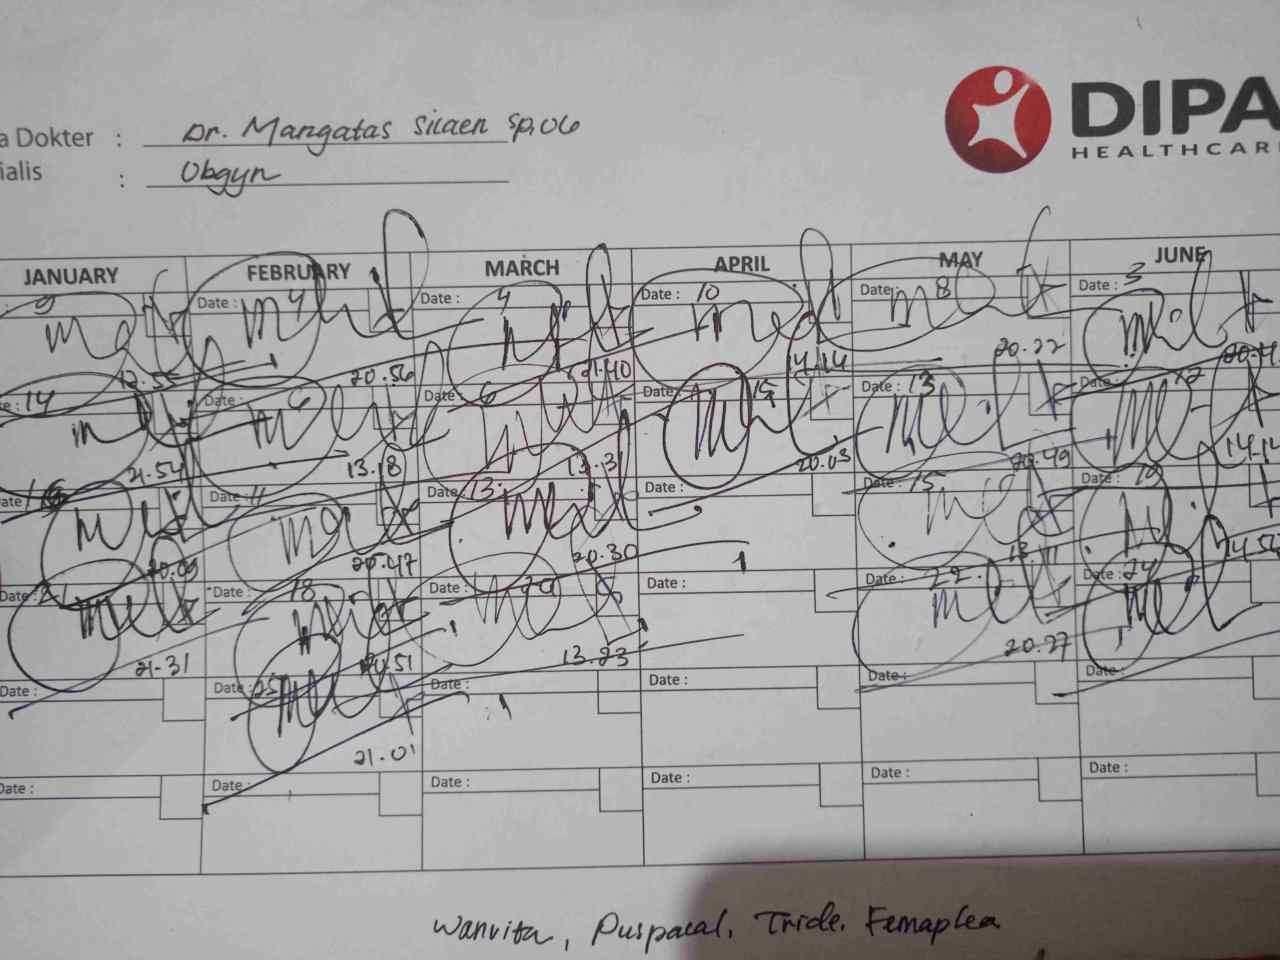 a Dokter : Dr. Mangatas Silaen Sp.OG
ialis : Obgyn
DIPA
HEALTHCAR
JANUARY FEBRUARY MARCH APRIL MAY JUNE
: 9 Date : 4 Date : 4 Date : 10 Date : 8 Date : 3
12.55 20.56 21.40 14.14 20.22
e : 14 Date : 6 Date : 6 Date : 15 Date : 13 Date : 12
21.54 13.18 13.31 20.03 20.49 14.14
ate : 16 Date : 11 Date : 13 Date : Date : 15 Date :
20.09 20.47 20.30
Date : Date : 18 Date : 20 Date : Date : 22 Date : 24
21.31 20.51 13.23 20.27
Date : Date : 25 Date : Date : Date : Date :
21.01
Date : Date : Date : Date : Date : Date :
Wanvita, Puspacal, Tricle, Femaplea